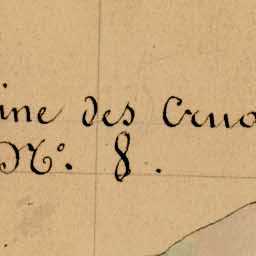 ine des Cruo
N°. 8.